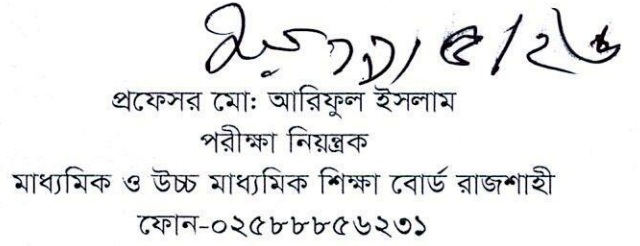 প্রফেসর মো: আরিফুল ইসলাম
পরীক্ষা নিয়ন্ত্রক
মাধ্যমিক ও উচ্চ মাধ্যমিক শিক্ষা বোর্ড রাজশাহী
ফোন-০২৫৮৮৮৫৬২৩১